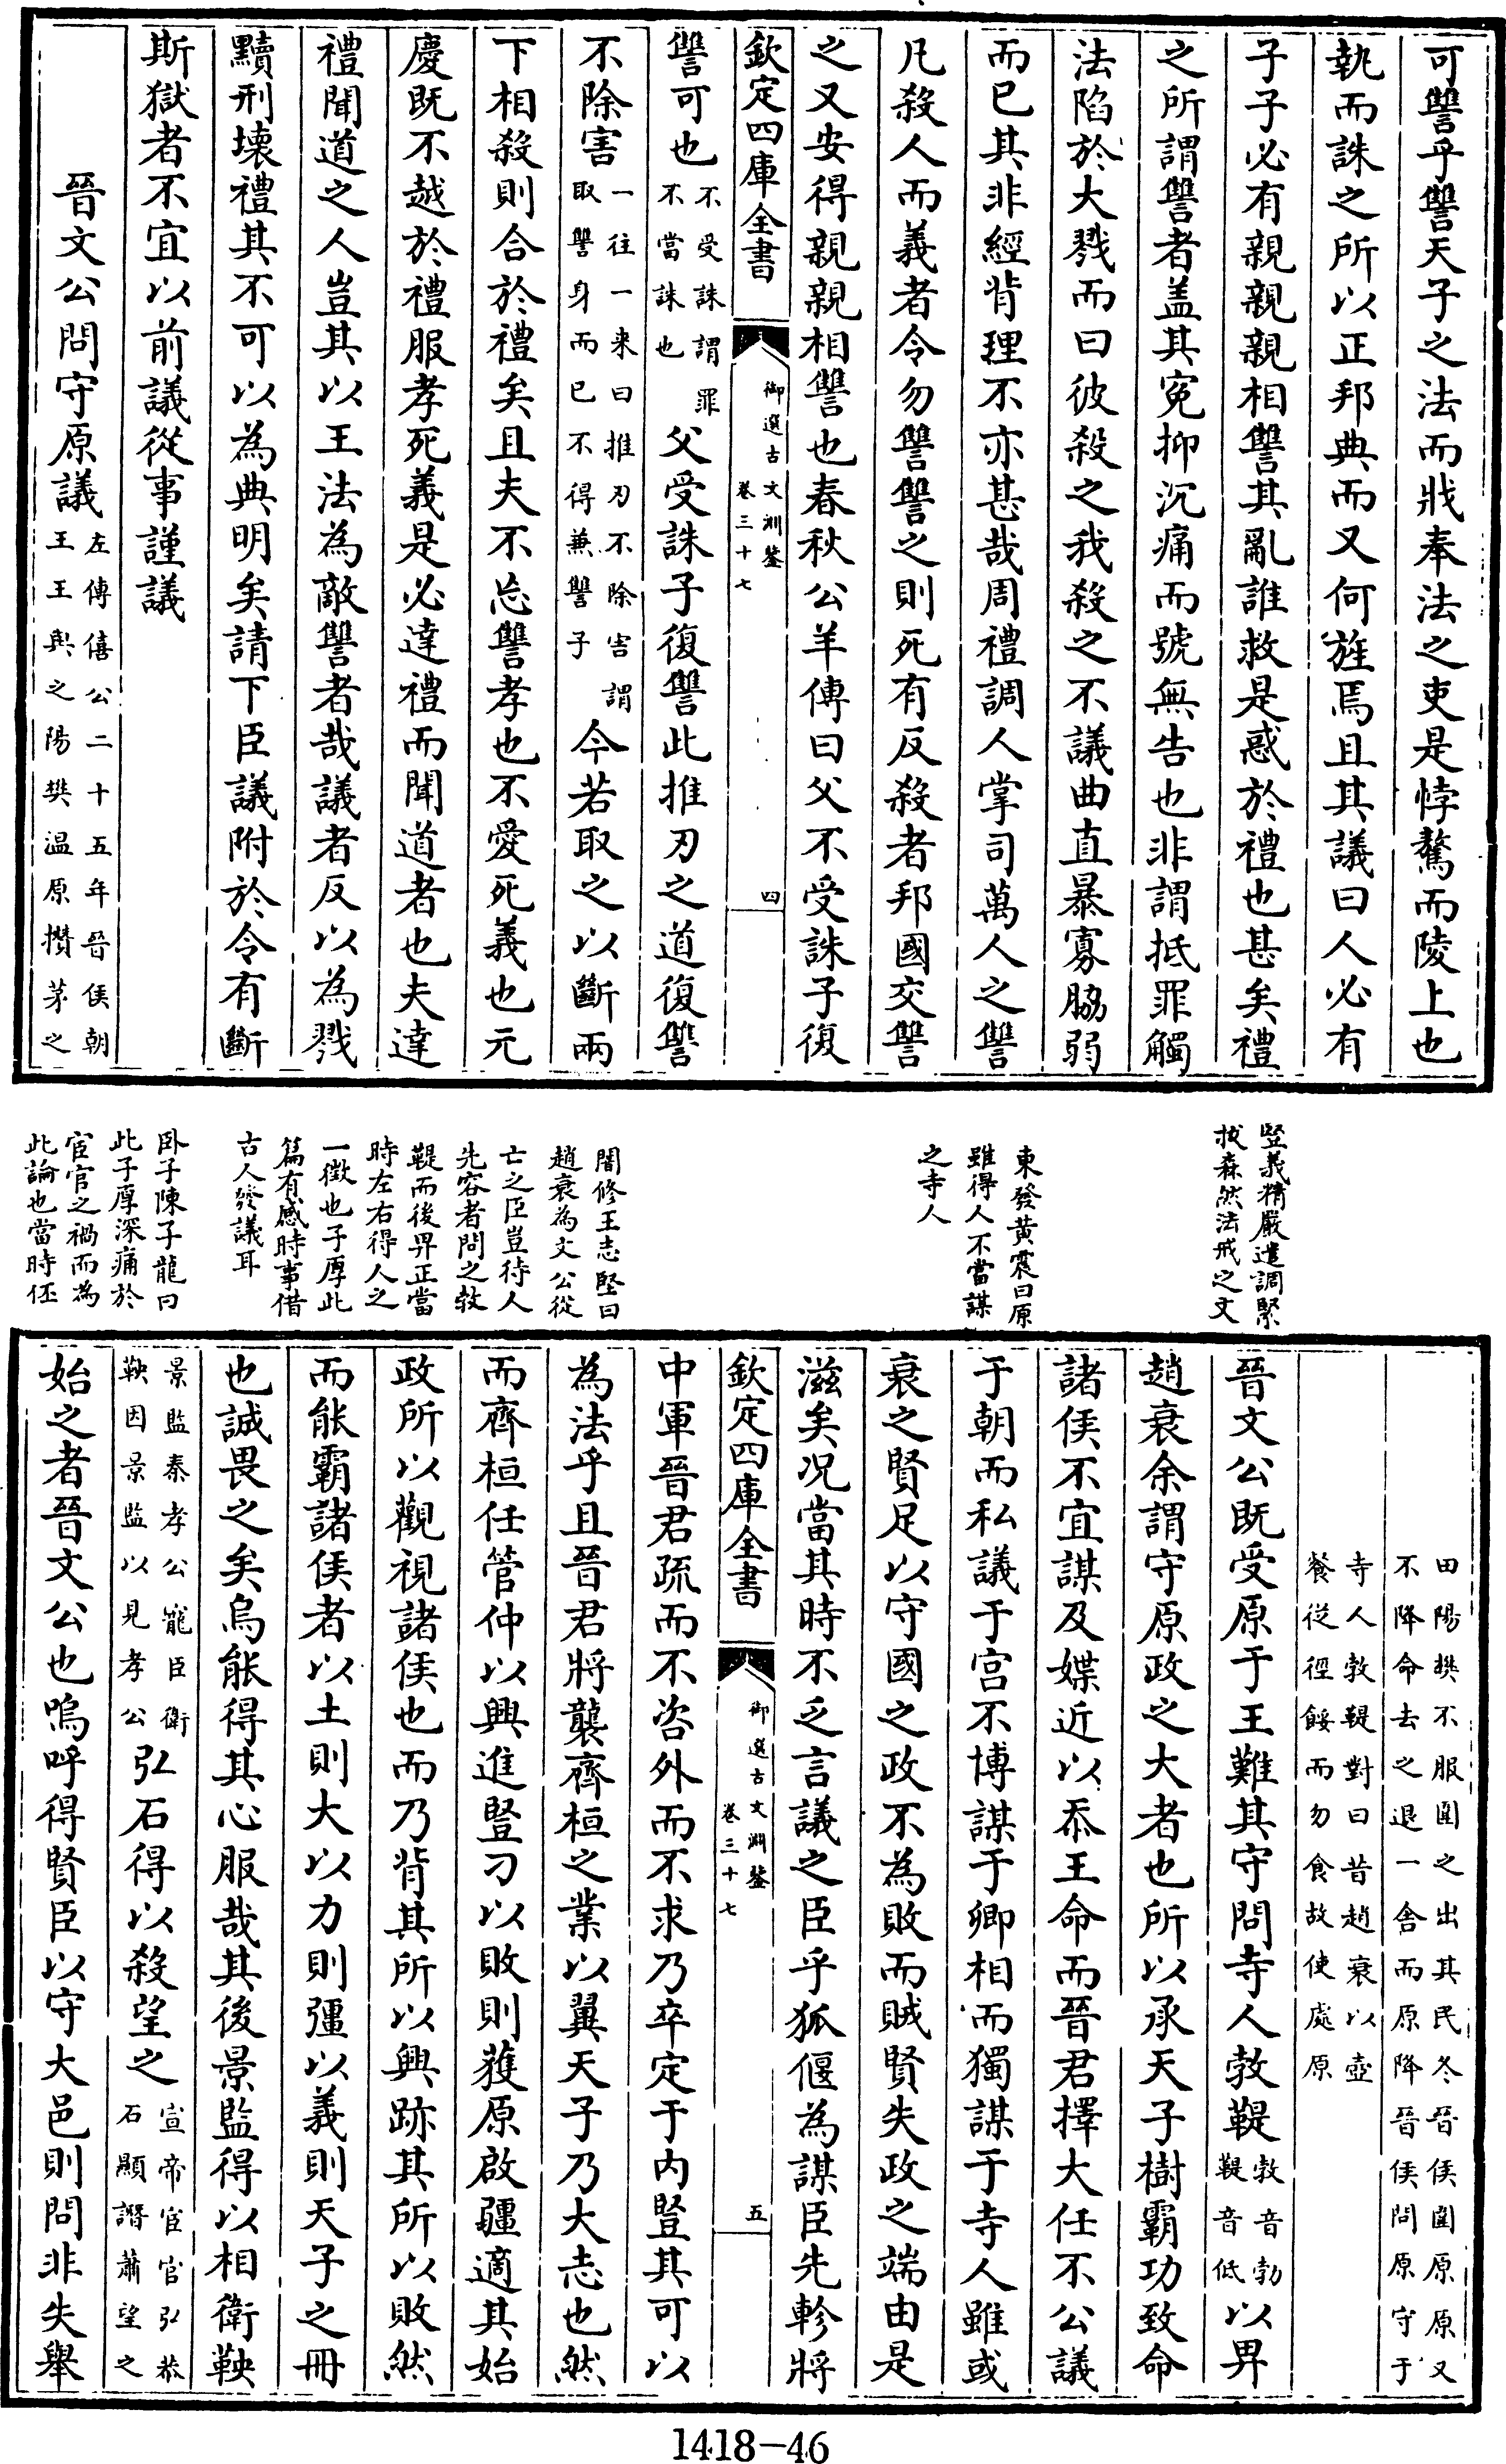 可讐乎讐天子之法而戕奉法之吏是悖驁而陵上也
執而誅之所以正邦典而又何旌焉且其議曰人必有
子子必有親親親相讐其亂誰救是惑於禮也甚矣禮
之所謂讐者盖其寃抑沉痛而號無告也非謂抵罪觸
法陷於大戮而曰彼殺之我殺之不議曲直暴寡脇弱
而已其非經背理不亦甚哉周禮調人掌司萬人之讐
凡殺人而義者令勿讐讐之則死有反殺者邦國交讐
之又安得親親相讐也春秋公羊傳曰父不受誅子復
欽定四庫全書 御選古文淵鑒 卷三十七 四
讐可也不受誅謂罪不當誅也父受誅子復讐此推刃之道復讐
不除害一往一来曰推刃不除害謂取讐身而已不得兼讐子今若取之以斷兩
下相殺則合於禮矣且夫不忘讐孝也不愛死義也元
慶既不越於禮服孝死義是必達禮而聞道者也夫達
禮聞道之人豈其以王法為敵讐者哉議者反以為戮
黷刑壊禮其不可以為典明矣請下臣議附於令有斷
斯獄者不宜以前議從事謹議
晉文公問守原議左傳僖公二十五年晉侯朝王王與之陽樊温原攢茅之
竪義精嚴遣調緊
拔森然法戒之文
東發黄震曰原
雖得人不當謀
之寺人
闇修王志堅曰
趙衰為文公從
亡之臣豈待人
先容者問之㪍
鞮而後畀正當
時左右得人之
一徴也子厚此
篇有感時事借
古人發議耳
卧子陳子龍曰
此子厚深痛於
宦官之禍而為
此論也當時伾
田陽樊不服圍之出其民冬晉侯圍原原又不降命去之退一舍而原降晉侯問原守于
寺人㪍鞮對曰昔趙衰以壺餐從徑餒而勿食故使處原
晉文公既受原于王難其守問寺人㪍鞮㪍音勃鞮音低以畀
趙衰余謂守原政之大者也所以承天子樹霸功致命
諸侯不宜謀及媟近以忝王命而晉君擇大任不公議
于朝而私議于宫不博謀于卿相而獨謀于寺人雖或
衰之賢足以守國之政不為敗而賊賢失政之端由是
滋矣况當其時不乏言議之臣乎狐偃為謀臣先軫將
欽定四庫全書 御選古文淵鑒 卷三十七 五
中軍晉君疏而不咨外而不求乃卒定于内豎其可以
為法乎且晉君將襲齊桓之業以翼天子乃大志也然
而齊桓任管仲以興進豎刁以敗則獲原啟疆適其始
政所以觀視諸侯也而乃背其所以興跡其所以敗然
而能霸諸侯者以土則大以力則彊以義則天子之冊
也誠畏之矣烏能得其心服哉其後景監得以相衛鞅
景監秦孝公寵臣衛鞅因景監以見孝公弘石得以殺望之宣帝宦官弘恭石顯譖蕭望之
始之者晉文公也嗚呼得賢臣以守大邑則問非失舉
1418-46